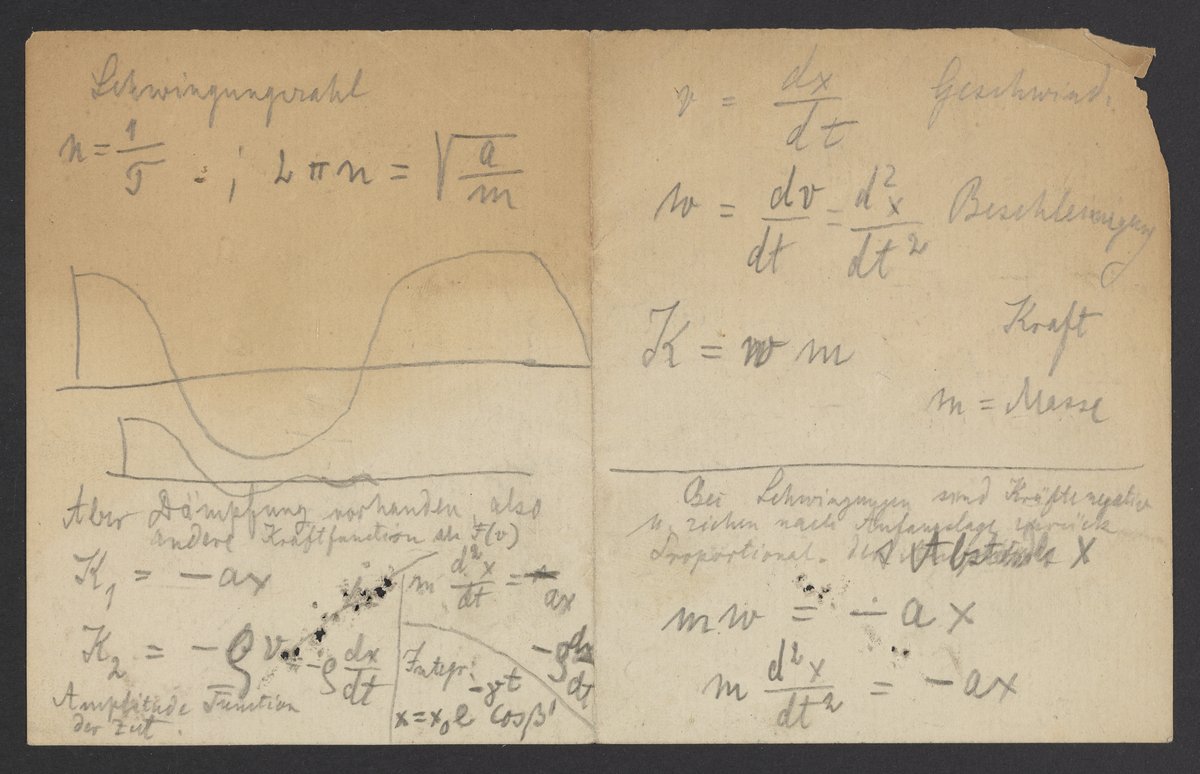 Schwingungszahl
n = 1/T = ; 2πn = √(a/m)
Aber Dämpfung vorhanden, also
andere Kraftfunction als F(v)
K₁ = −ax
K₂ = −ϱ v = −ϱ dx/dt
Amplitude Function
der Zeit.
m d²x/dt² = −ax
−ϱ dx/dt
Integr.
x = x₀ e^(−γt) cos β'
v = dx/dt Geschwind.
w = dv/dt = d²x/dt² Beschleunigung
K = w m Kraft
m = Masse
Bei Schwingungen sind Kräfte negativ
u. ziehen nach Anfangslage zurück
Proportional. Abstands X
m w = −a x
m d²x/dt² = −ax